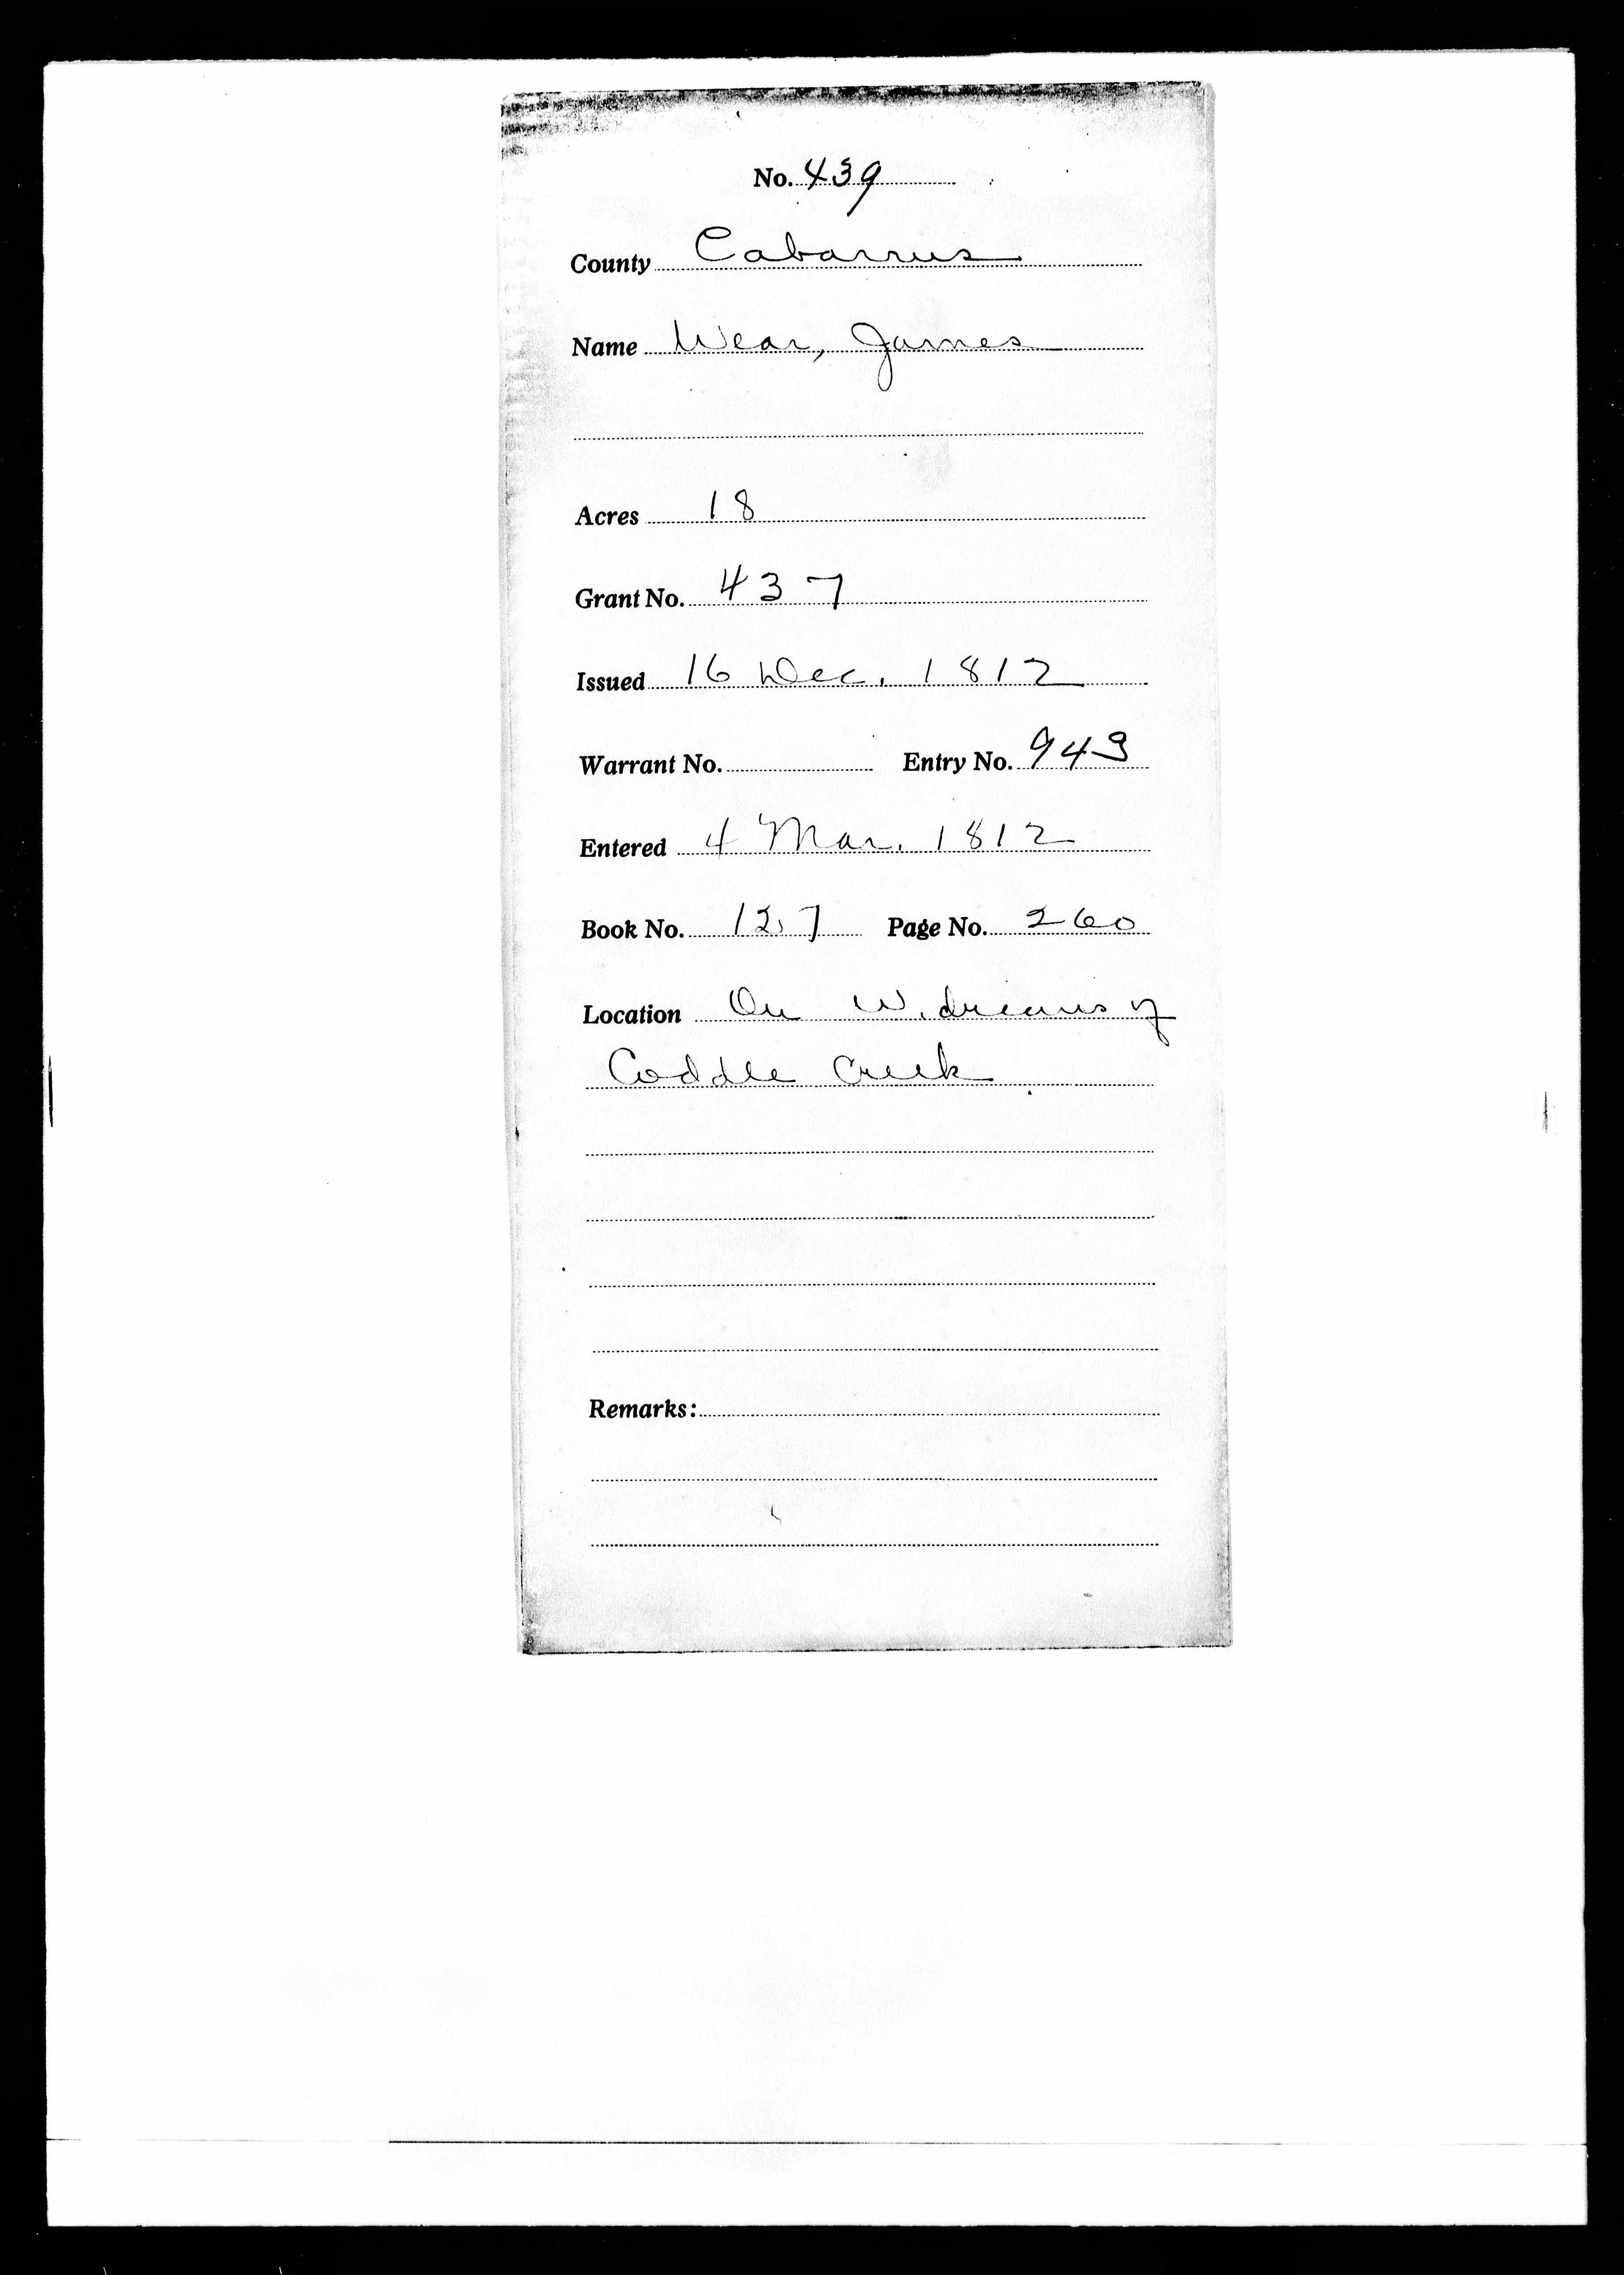 No. 439
County Cabarrus
Name Wear, James
Acres 18
Grant No. 437
Issued 16 Dec. 1812
Warrant No. Entry No. 943
Entered 4 Mar. 1812
Book No. 127 Page No. 260
Location On W. dreans of
Coddle Creek
Remarks: